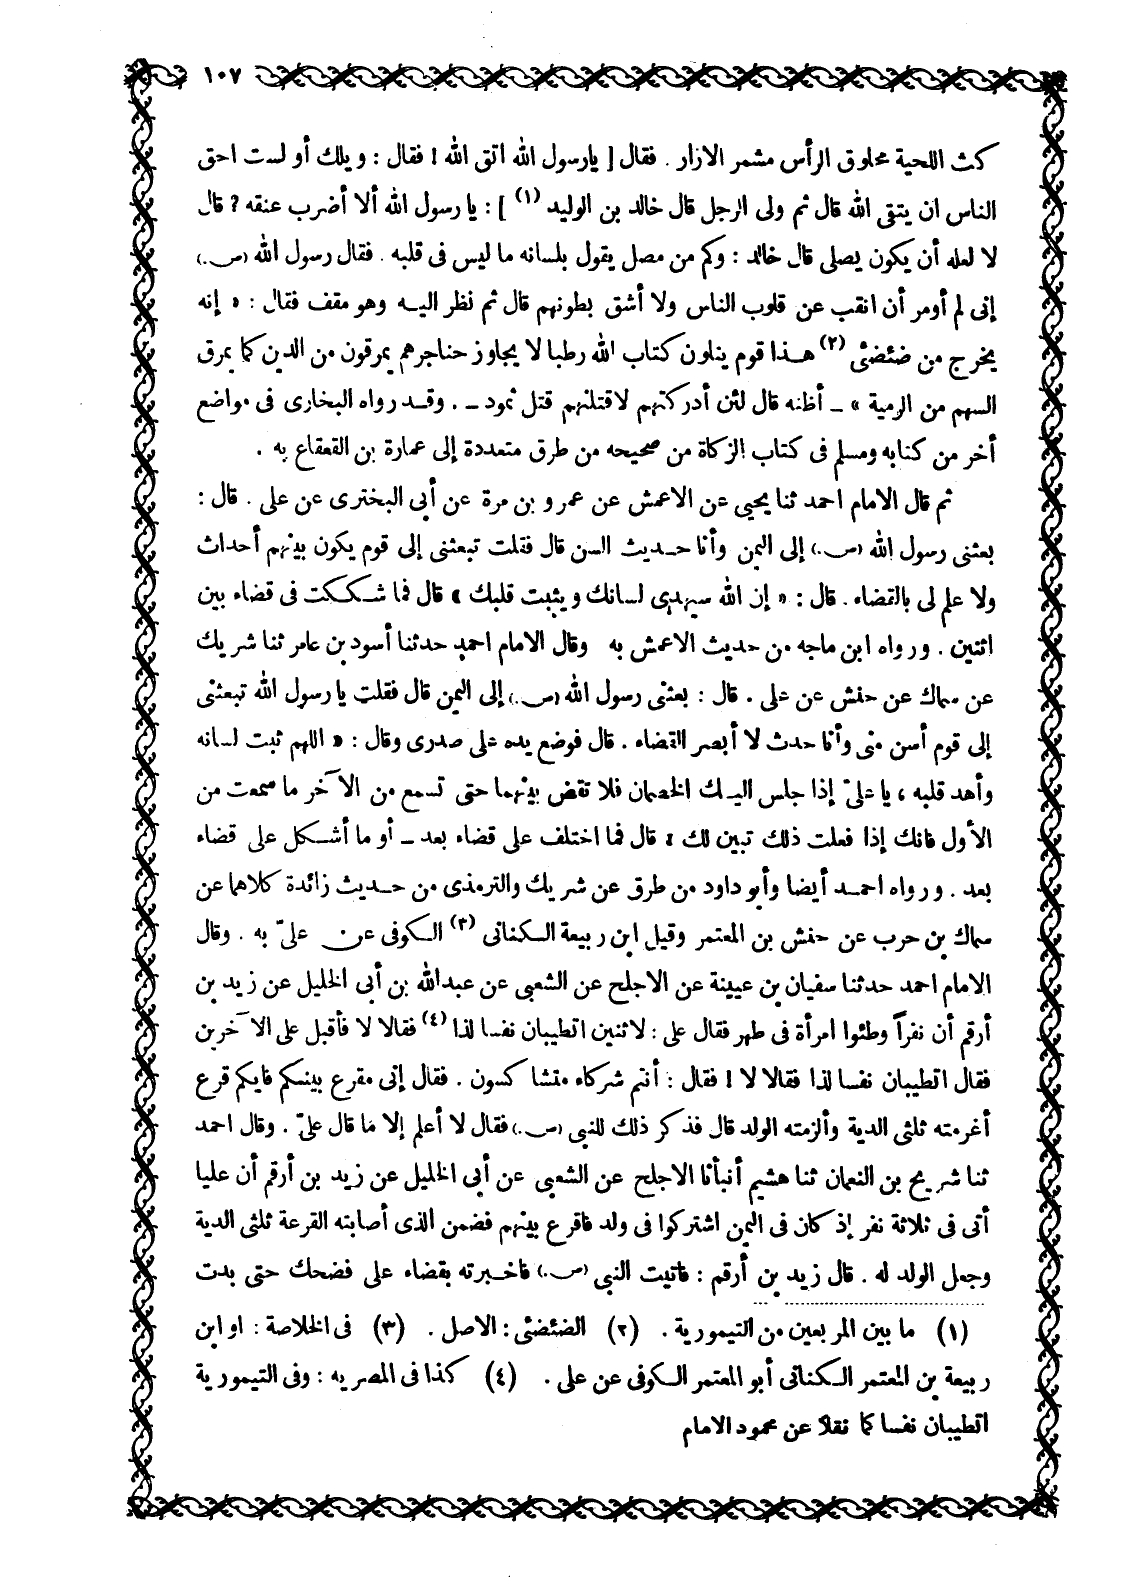 ١٠٧
كث اللحية محلوق الرأس مشمر الازار . فقال [ يارسول الله اتق الله ! فقال : ويلك أو لست احق
الناس ان يتقى الله قال ثم ولى الرجل قال خالد بن الوليد (١) ] : يا رسول الله ألا أضرب عنقه ? قال
لا لعله أن يكون يصلى قال خالد : وكم من مصل يقول بلسانه ما ليس فى قلبه . فقال رسول الله (ص.)
إنى لم أومر أن انقب عن قلوب الناس ولا أشق بطونهم قال ثم نظر اليه وهو مقف فقال : « إنه
يخرج من ضئضئى (٢) هذا قوم يتلون كتاب الله رطبا لا يجاوز حناجرهم يمرقون من الدين كما يمرق
السهم من الرمية » ــ أظنه قال لئن أدركتهم لاقتلنهم قتل ثمود ــ . وقد رواه البخارى فى مواضع
أخر من كتابه ومسلم فى كتاب الزكاة من صحيحه من طرق متعددة إلى عمارة بن القعقاع به .
ثم قال الامام احمد ثنا يحيى عن الاعمش عن عمرو بن مرة عن أبى البخترى عن على . قال :
بعثنى رسول الله (ص.) إلى اليمن وأنا حديث السن قال فقلت تبعثنى إلى قوم يكون بينهم أحداث
ولا علم لى بالقضاء . قال : « إن الله سيهدى لسانك ويثبت قلبك » قال فما شككت فى قضاء بين
اثنين . ورواه ابن ماجه من حديث الاعمش به وقال الامام احمد حدثنا أسود بن عامر ثنا شريك
عن سماك عن حنش عن على . قال : بعثنى رسول الله (ص.) إلى اليمن قال فقلت يا رسول الله تبعثنى
إلى قوم أسن منى وأنا حدث لا أبصر القضاء . قال فوضع يده على صدرى وقال : « اللهم ثبت لسانه
وأهد قلبه ، يا علىّ إذا جلس اليك الخصمان فلا تقض بينهما حتى تسمع من الآخر ما سمعت من
الأول فانك إذا فعلت ذلك تبين لك » قال فما اختلف على قضاء بعد ــ أو ما أشكل على قضاء
بعد . ورواه احمد أيضا وأبو داود من طرق عن شريك والترمذى من حديث زائدة كلاهما عن
سماك بن حرب عن حنش بن المعتمر وقيل ابن ربيعة الكنانى (٣) الكوفى عن علىّ به . وقال
الامام احمد حدثنا سفيان بن عيينة عن الاجلح عن الشعبى عن عبدالله بن أبى الخليل عن زيد بن
أرقم أن نفراً وطئوا امرأة فى طهر فقال على : لاثنين اتطيبان نفسا لذا (٤) فقالا لا فأقبل على الآخرين
فقال اتطيبان نفسا لذا فقالا لا ! فقال : أنتم شركاء متشاكسون . فقال إنى مقرع بينكم فايكم قرع
أغرمته ثلثى الدية وألزمته الولد قال فذكر ذلك للنبى (ص.) فقال لا أعلم إلا ما قال علىّ . وقال احمد
ثنا شريح بن النعمان ثنا هشيم أنبأنا الاجلح عن الشعبى عن أبى الخليل عن زيد بن أرقم أن عليا
أتى فى ثلاثة نفر إذ كان فى اليمن اشتركوا فى ولد فاقرع بينهم فضمن الذى أصابته القرعة ثلثى الدية
وجعل الولد له . قال زيد بن أرقم : فاتيت النبى (ص.) فاخبرته بقضاء على فضحك حتى بدت
(١) ما بين المربعين من التيمورية . (٢) الضئضئى : الاصل . (٣) فى الخلاصة : او ابن
ربيعة بن المعتمر الكنانى أبو المعتمر الكوفى عن على . (٤) كذا فى المصريه : وفى التيمورية
اتطيبان نفسا كما نقلا عن محمود الامام